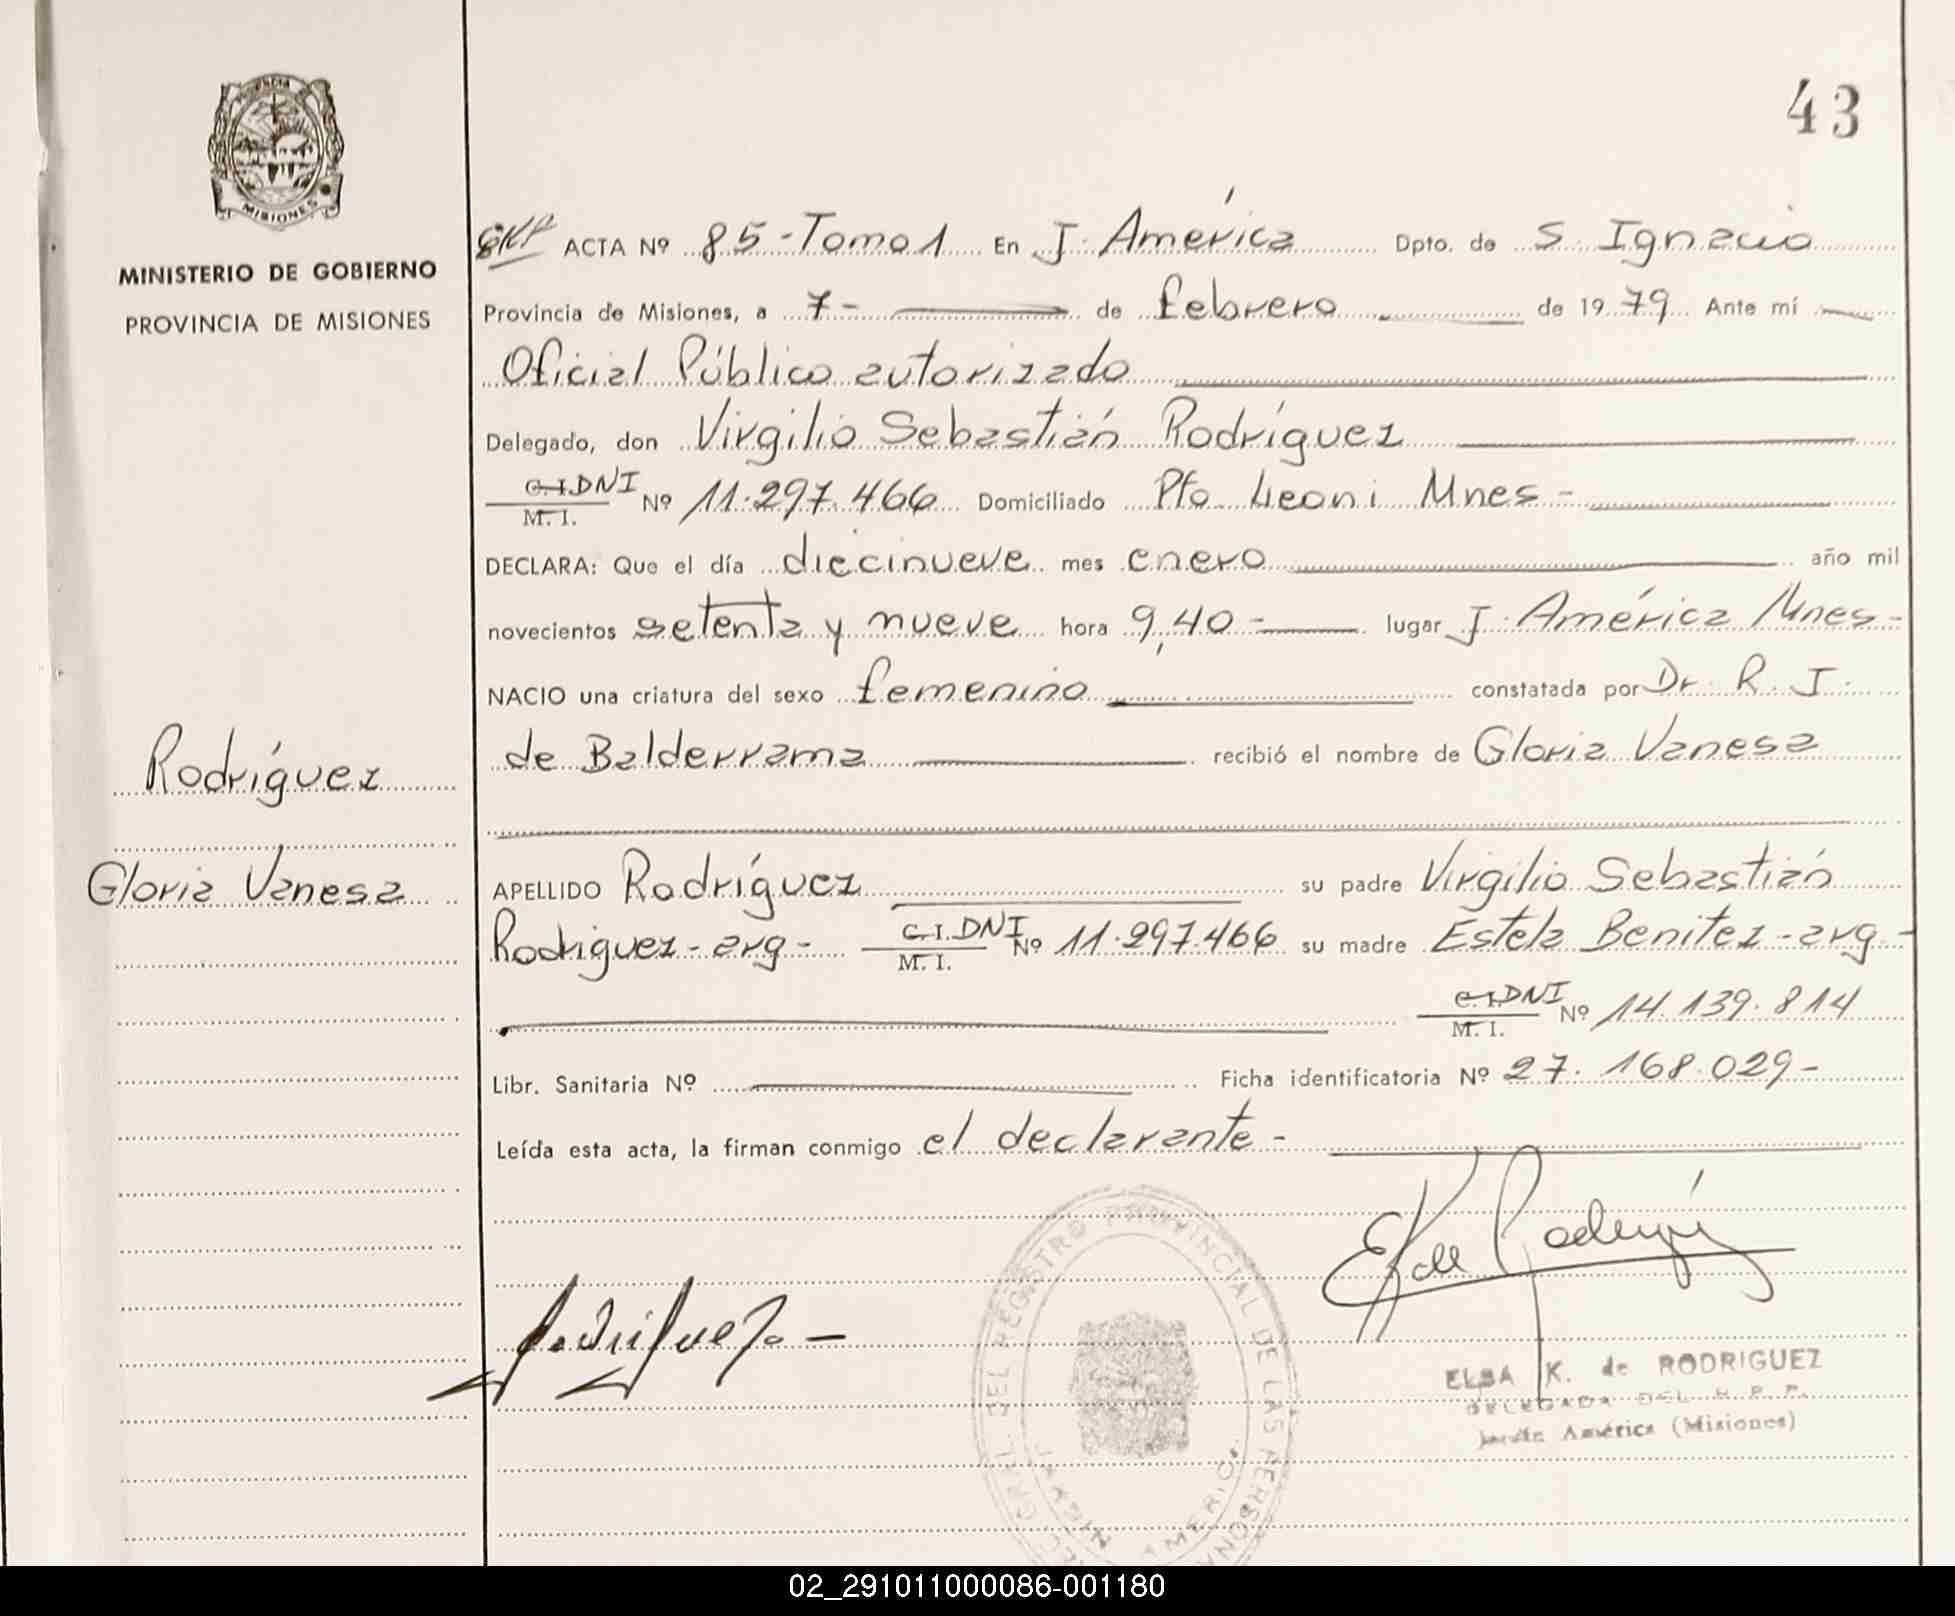 43
MISIONES
MINISTERIO DE GOBIERNO
PROVINCIA DE MISIONES
ACTA Nº 85-Tomo 1 En J. América Dpto. de S. Ignacio
Provincia de Misiones, a 7- de febrero de 1979 Ante mí
Oficial Público autorizado
Delegado, don Virgilio Sebastián Rodríguez
C.I. DNI
M. I. Nº 11.297.466 Domiciliado Pto Leoni Mnes-
DECLARA: Que el día diecinueve mes enero año mil
novecientos setenta y nueve hora 9,40- lugar J. América Mnes-
NACIO una criatura del sexo femenino constatada por Dr. R. J.
de Balderrama recibió el nombre de Gloria Vanesa
Rodríguez
Gloria Vanesa
APELLIDO Rodríguez su padre Virgilio Sebastián
Rodriguez-arg- C.I. DNI M. I. Nº 11.297.466 su madre Estela Benitez-arg-
C.I. DNI M. I. Nº 14.139.814
Libr. Sanitaria Nº Ficha identificatoria Nº 27.168.029-
Leída esta acta, la firman conmigo el declarante-
GRAL. DEL REGISTRO PROVINCIAL DE LAS PERSONAS
ELBA K. de RODRIGUEZ
DELEGADA DEL R. P. P.
Jardín América (Misiones)
02_291011000086-001180